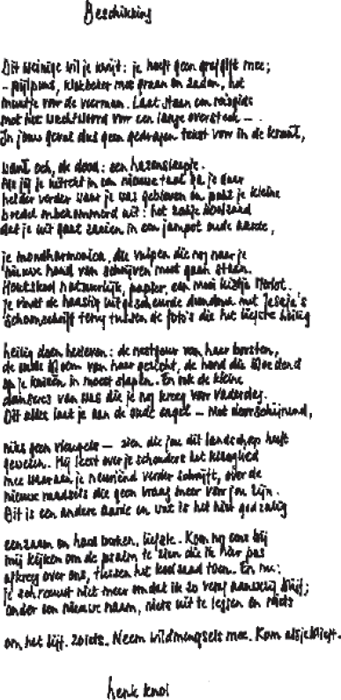 Beschikking
Dit weinige wil je kwijt: je hoeft geen grafgift mee;
- pijlpunt, klokbeker met graan en zaden, het
muntje voor de veerman. Laat staan een reisgids
met het wachtwoord voor een lange oversteek - .
In jouw geval dus geen gedragen tekst voor in de krant,
want och, de dood: een hazenslaapje.
Als jij je uitrekt in een nieuwe taal ga je daar
helder verder waar je was gebleven en pakt je kleine
boedel onbekommerd uit: het zakje
dat je wit gaat zaaien in een jampot oude aarde,
je mondharmonica, die vulpen die nog naar je
nieuwe hand van schrijven moet gaan staan.
Houtskool natuurlijk, papier, een mooi kistje Merlot.
Je vindt de haastig uitgescheurde dundruk met Jesaja's
schoonschrift terug tussen de foto's die het liefste heilig
heilig doen herleven: de van haar borsten,
de oude bloem van haar gezicht, de hond die bloedend
op je knieën in moest slapen. En ook de kleine
danseres van was die je nog kreeg voor vaderdag.
Dit alles laat je aan de oude engel - Niet doorschijnend,
niks geen vleugels - zien die jou dit landschap heeft
gewezen. Hij leest over je schouders het klaaglied
mee waaraan je neuriënd verder schrijft, over de
nieuwe raadsels die geen vraag meer voor jou zijn.
Dit is een andere aarde en wat is het hier godzalig
eenzaam en haast donker, liefste. Kom nog eens bij
mij kijken om de psalm te zien die ik hier pas
afkreeg over ons, tussen het koolzaad toen. En nu:
je schreeuwt niet meer omdat ik zo ver aanwezig blijf;
onder een nieuwe naam, niets uit te leggen en niets
om het lijf. Zoiets. Neem wildmengsels mee. Kom alsjeblieft.
henk knol